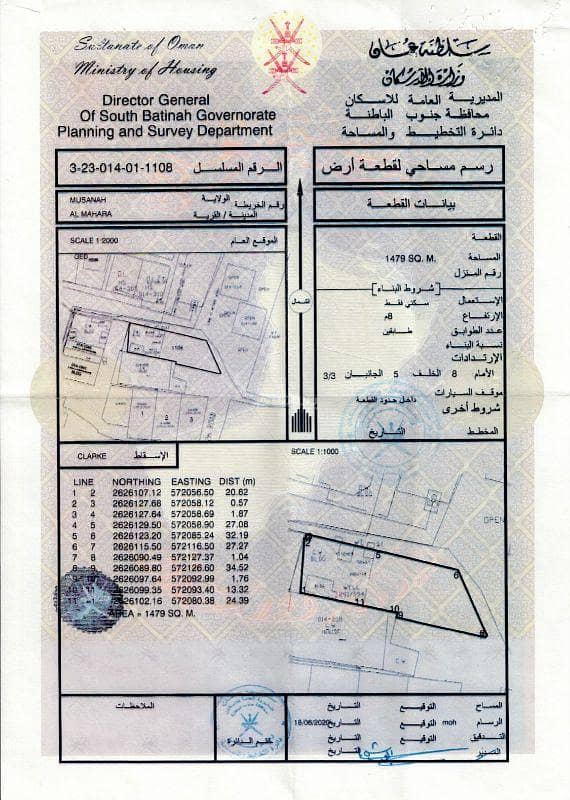 Sultanate of Oman
Ministry of Housing
سلطنة عمان
وزارة الإسكان
Director General
Of South Batinah Governorate
Planning and Survey Department
المديرية العامة للاسكان
محافظة جنوب الباطنة
دائرة التخطيط والمساحة
3-23-014-01-1108 الرقم المسلسل
رسم مساحي لقطعة أرض
MUSANAH الولاية
رقم الخريطة
AL MAHARA المدينة / القرية
بيانات القطعة
SCALE 1:2000 الموقع العام
الشمال
القطعة
المساحة 1479 SQ. M.
رقم المنزل
[شروط البناء]
الإستعمال سكني فقط
الإرتفاع 8م
عدد الطوابق طابقين
نسبة البناء
الإرتدادات
الأمام 8 الخلف 5 الجانبان 3/3
موقف السيارات داخل حدود القطعة
شروط أخرى
المخطط التاريخ
OPEN
1108
1 2 3
CLARKE الإسقاط
SCALE 1:1000
LINE NORTHING EASTING DIST (m)
1 2 2626107.12 572056.50 20.62
2 3 2626127.68 572058.12 0.57
3 4 2626127.64 572058.69 1.87
4 5 2626129.50 572058.90 27.08
5 6 2626123.20 572085.24 32.19
6 7 2626115.50 572116.50 27.27
7 8 2626090.49 572127.37 1.04
8 9 2626089.80 572126.60 34.52
2626097.64 572092.99 1.76
2626099.35 572093.40 13.32
2626102.16 572080.38 24.39
AREA = 1479 SQ. M.
OPEN
C.W
BLDG
WELL
5
6
1
11
10
9
8
014-358
C.W
HOUSE
C.W
الملاحظات
ختم الدائرة
المساح التوقيع التاريخ
الرسام moh التوقيع التاريخ 18/06/2020
التدقيق التوقيع التاريخ
التاريخ